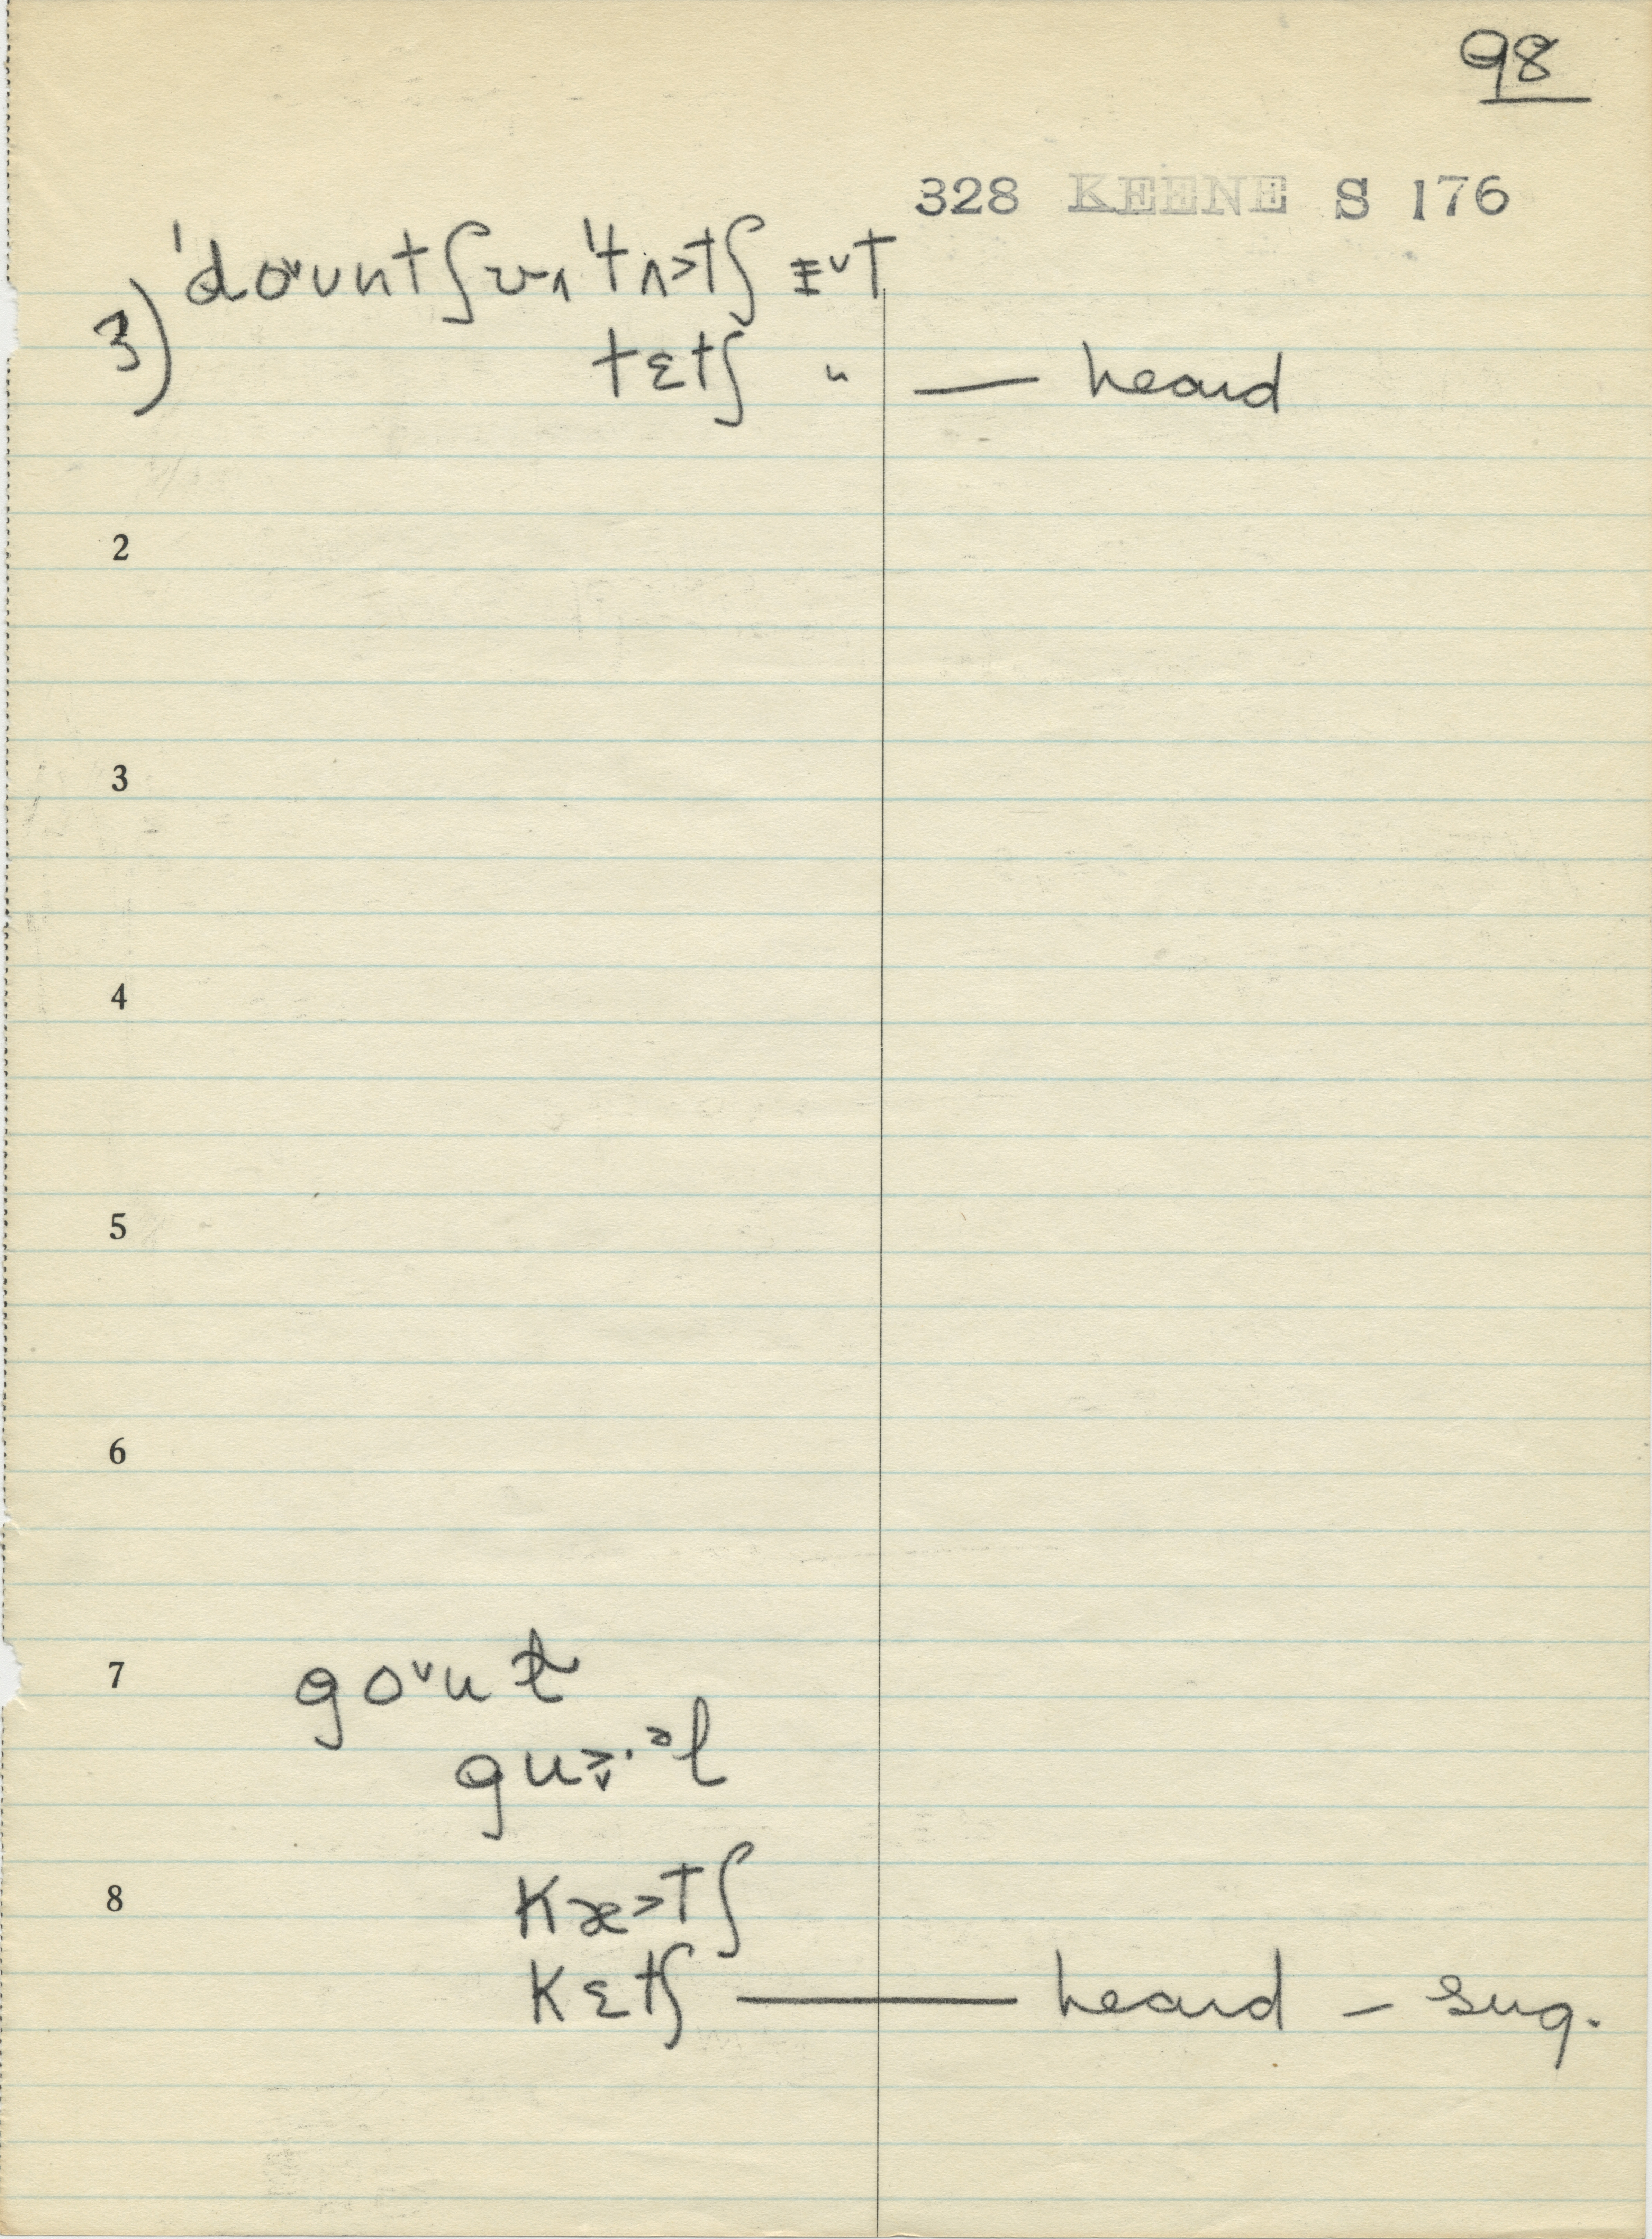 98
328 KEENE S 176
3) ˈdo˅ʊntʃ ˈtʌ>tʃ ɪ˅t
tɛtʃ " — heard
2
3
4
5
6
7 go˅ʊt
8 kæ>tʃ
kɛtʃ — heard – sug.